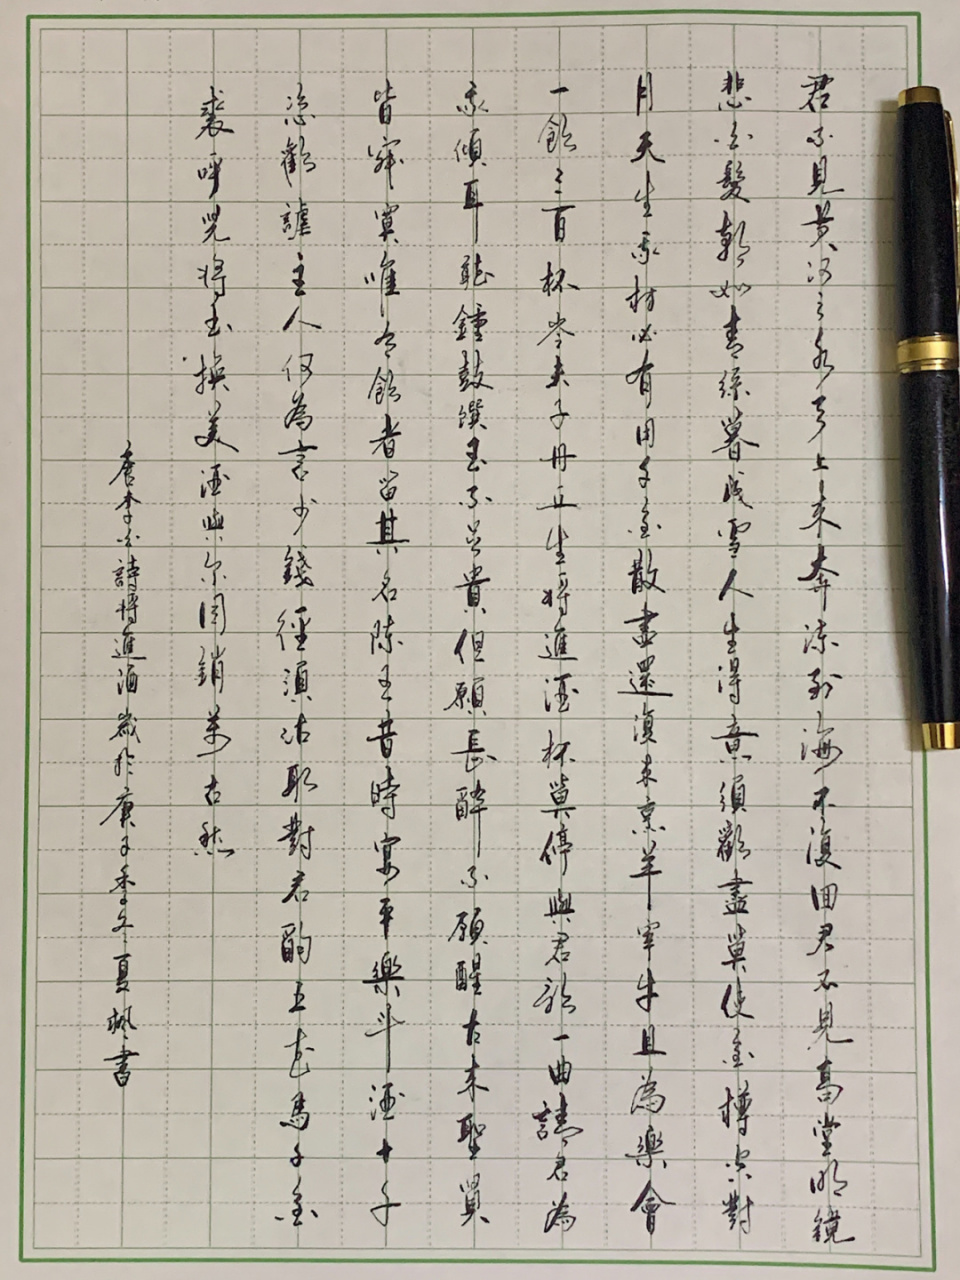 君不見黃河之水天上来奔流到海不復回君不見高堂明鏡
悲白髮朝如青絲暮成雪人生得意須歡盡莫使金樽空對
月天生我材必有用千金散盡還復来烹羊宰牛且為樂會
一飲三百杯岑夫子丹丘生將進酒杯莫停與君歌一曲請君為
我傾耳聽鐘鼓饌玉不足貴但願長醉不願醒古来聖賢
皆寂寞唯有飲者留其名陳王昔時宴平樂斗酒十千
恣歡謔主人何為言少錢徑須沽取對君酌五花馬千金
裘呼兒將出換美酒與尔同銷萬古愁
唐李白詩將進酒歲於庚子季冬夏楓書